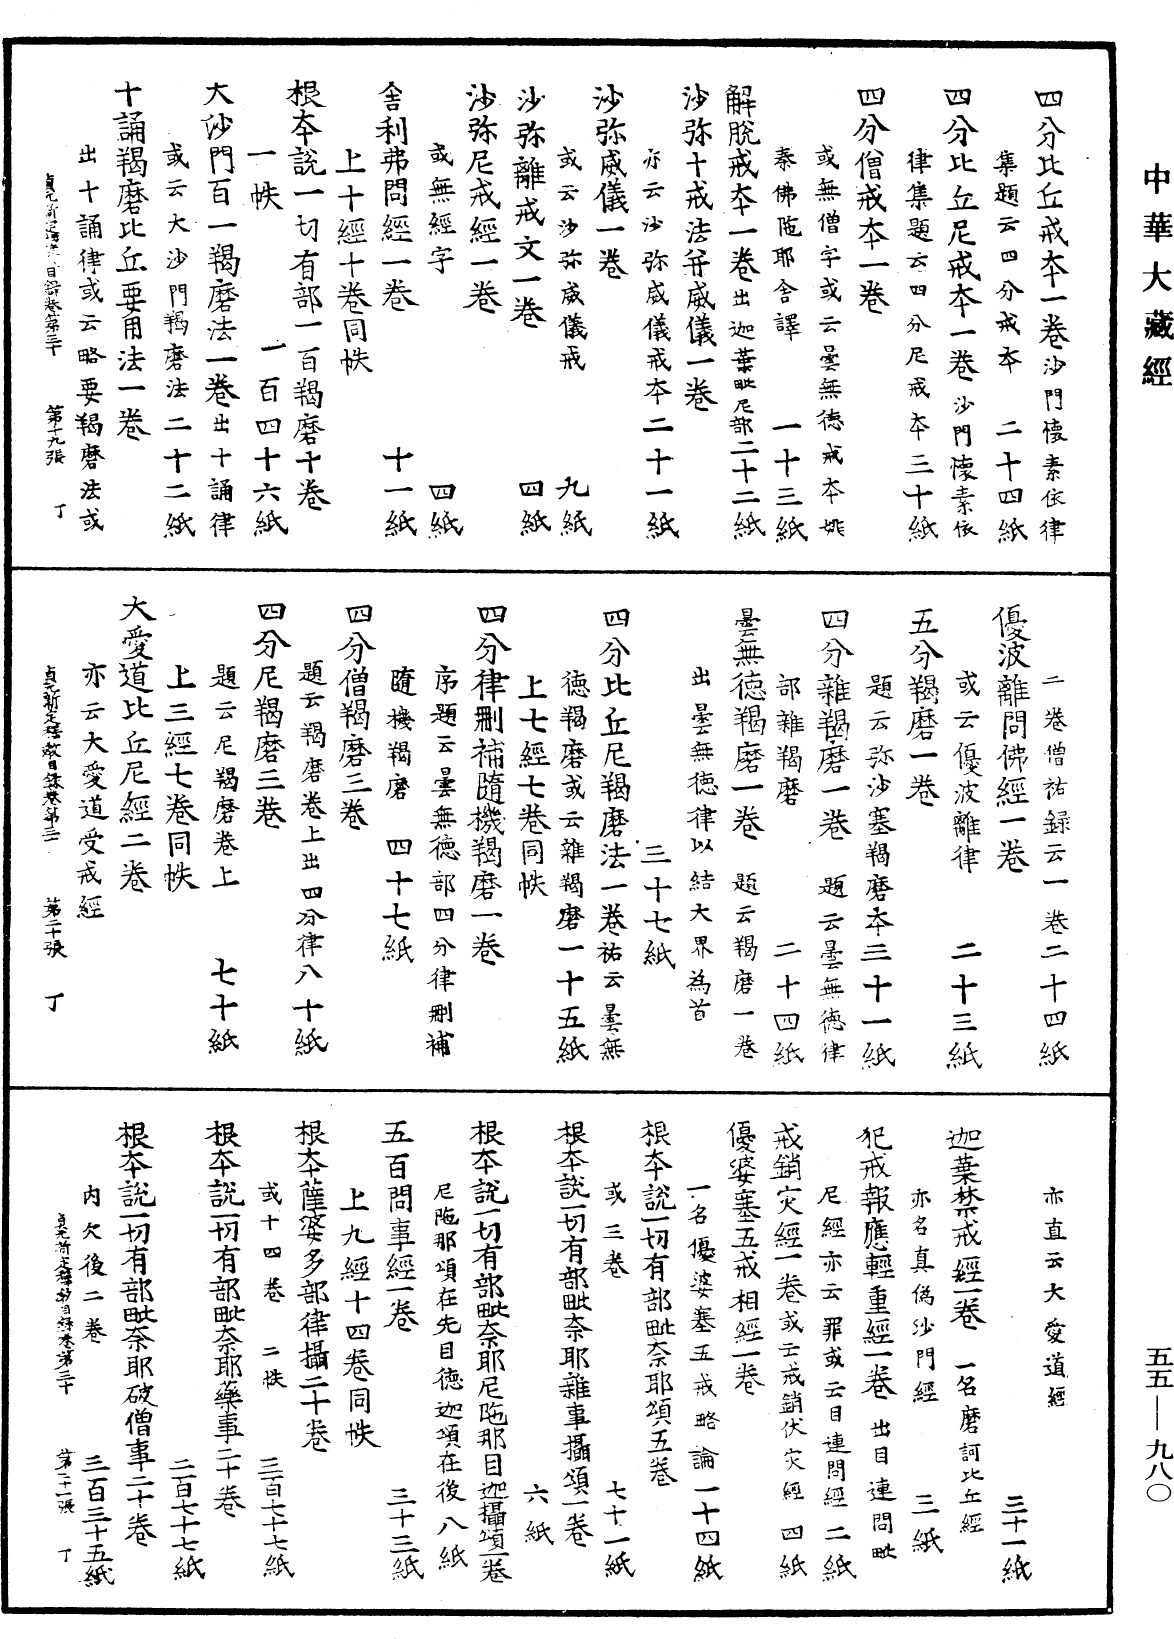 中華大藏經
四分比丘戒本一卷沙門懷素依律
集題云四分戒本 二十四紙
四分比丘尼戒本一卷沙門懷素依
律集題云四分尼戒本三十紙
四分僧戒本一卷
或無僧字或云曇無德戒本姚
秦佛陁耶舍譯 一十三紙
解脫戒本一卷出迦葉毗尼部二十二紙
沙弥十戒法并威儀一卷
亦云沙弥威儀戒本二十一紙
沙弥威儀一卷
或云沙弥威儀戒 九紙
沙弥離戒文一卷 四紙
沙弥尼戒經一卷
或無經字 四紙
舍利弗問經一卷 十一紙
上十經十卷同帙
根本說一切有部一百羯磨十卷
一帙 一百四十六紙
大沙門百一羯磨法一卷出十誦律
或云大沙門羯磨法二十二紙
十誦羯磨比丘要用法一卷
出十誦律或云略要羯磨法或
貞元新定釋教目錄卷第三十 第十九張 丁
二卷僧祐錄云一卷二十四紙
優波離問佛經一卷
或云優波離律 二十三紙
五分羯磨一卷
題云弥沙塞羯磨本三十一紙
四分雜羯磨一卷 題云曇無德律
部雜羯磨 二十四紙
曇無德羯磨一卷 題云羯磨一卷
出曇無德律以結大界為首
三十七紙
四分比丘尼羯磨法一卷祐云曇無
德羯磨或云雜羯磨一十五紙
上七經七卷同帙
四分律刪補隨機羯磨一卷
序題云曇無德部四分律刪補
隨機羯磨 四十七紙
四分僧羯磨三卷
題云羯磨卷上出四分律八十紙
四分尼羯磨三卷
題云尼羯磨卷上 七十紙
上三經七卷同帙
大愛道比丘尼經二卷
亦云大愛道受戒經
貞元新定釋教目錄卷第三十 第二十張 丁
亦直云大愛道經
三十一紙
迦葉禁戒經一卷 一名磨訶比丘經
亦名真偽沙門經 三紙
犯戒報應輕重經一卷 出目連問毗
尼經亦云罪或云目連問經 二紙
戒銷灾經一卷或云戒銷伏灾經 四紙
優婆塞五戒相經一卷
一名優婆塞五戒略論一十四紙
根本說一切有部毗奈耶頌五卷
或三卷 七十一紙
根本說一切有部毗奈耶雜事攝頌一卷
六紙
根本說一切有部毗奈耶尼陁那目迦攝頌一卷
尼陁那頌在先目德迦頌在後 八紙
五百問事經一卷 三十三紙
上九經十四卷同帙
根本薩婆多部律攝二十卷
或十四卷 二帙 三百七十七紙
根本說一切有部毗奈耶藥事二十卷
二百七十七紙
根本說一切有部毗奈耶破僧事二十卷
內欠後二卷 三百三十五紙
貞元新定釋教目錄卷第三十 第二十一張 丁
五五—九八〇